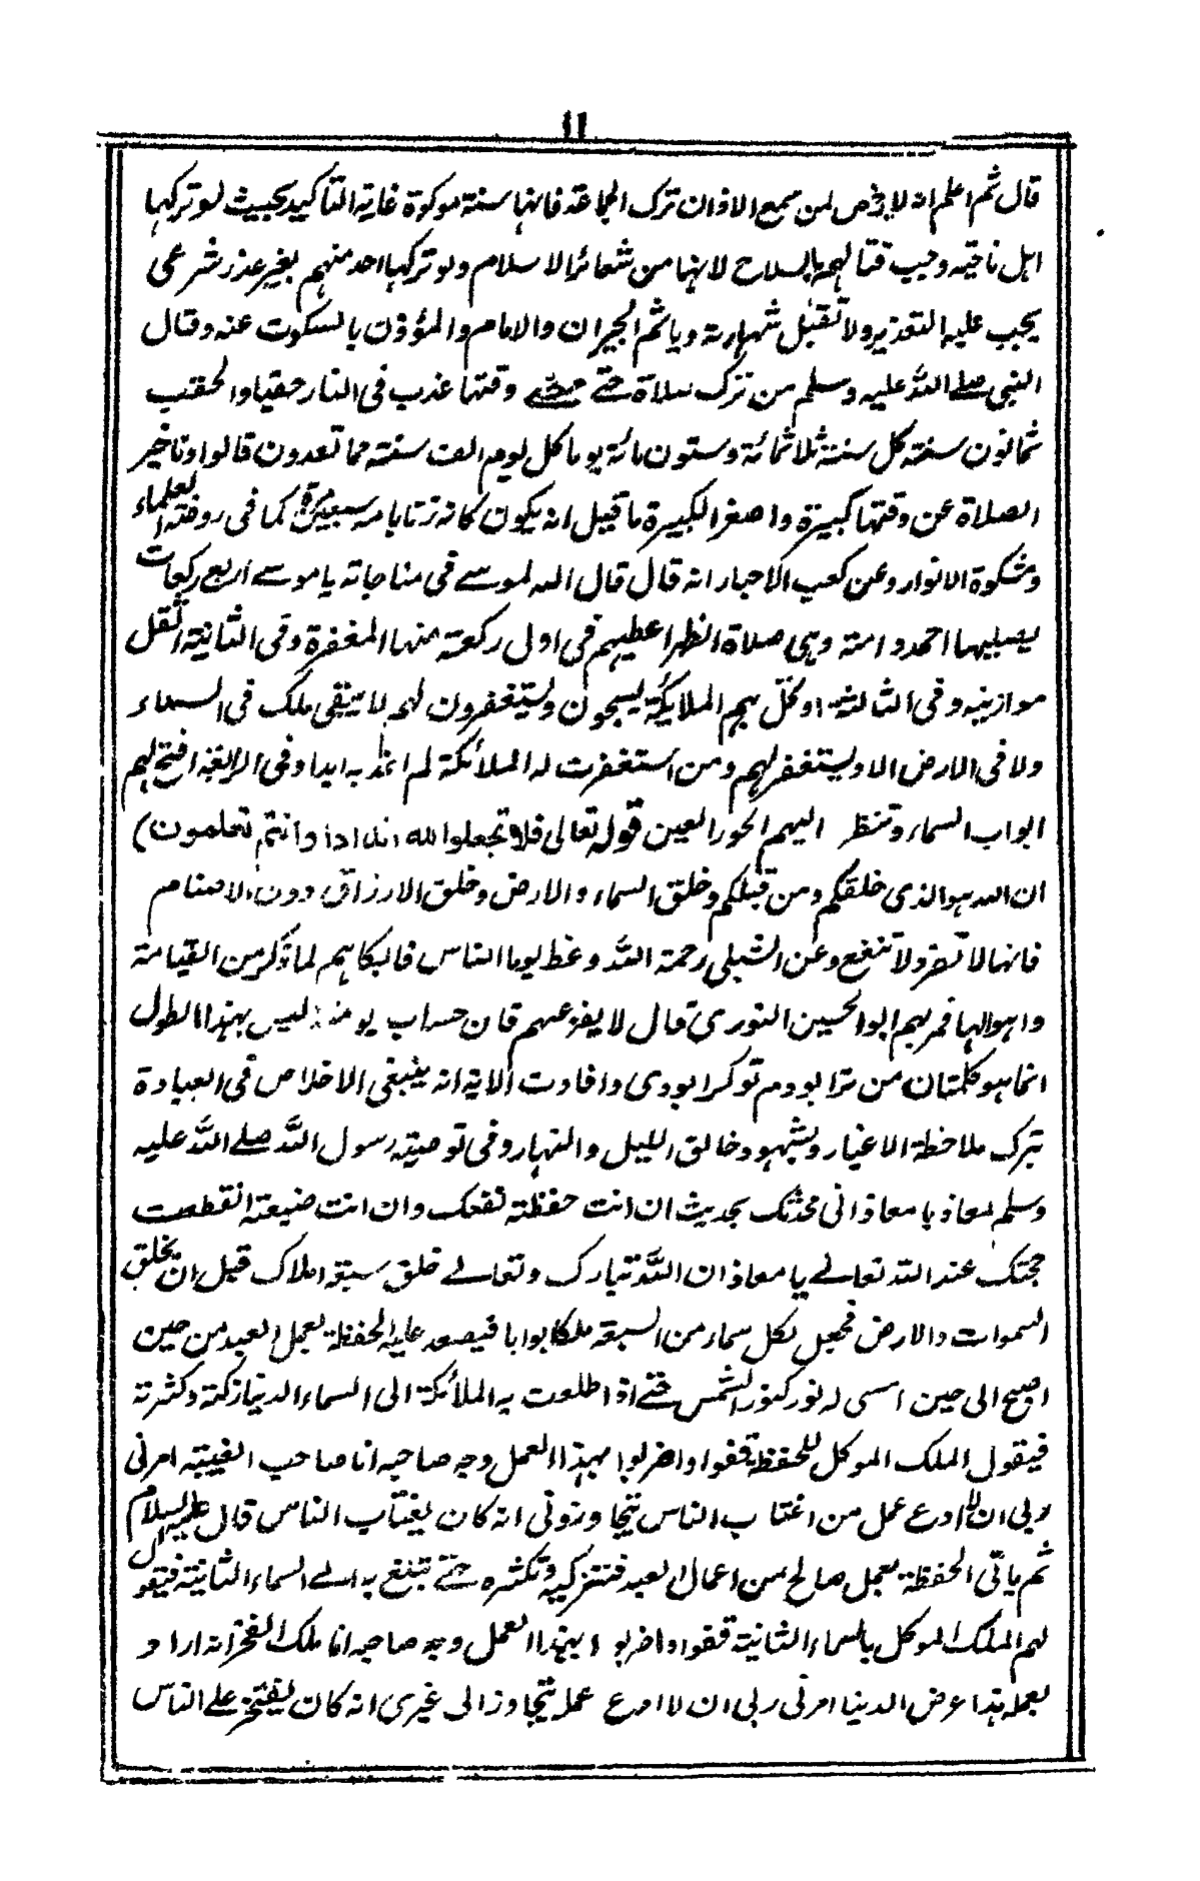 ١١
قال ثم اعلم انه لا يرخص لمن سمع الاذان ترك الجماعة فانها سنة موكدة غاية التأكيد بحيث لو تركها
اهل ناحية وجب قتالهم بالسلاح لانها من شعائر الاسلام ولو تركها احد منهم بغير عذر شرعى
يجب عليه التعذير ولا تقبل شهادته وياثم الجيران والامام والمؤذن بالسكوت عنه وقال
النبى صلى الله عليه وسلم من ترك صلاة حتى مضى وقتها عذب فى النار حقبا والحقب
ثمانون سنة كل سنة ثلاثمائة وستون يوما كل يوم الف سنة مما تعدون قالوا وتاخير
الصلاة عن وقتها كبيرة واصغر الكبيرة ما قيل انه يكون كانه زنا بامه سبعين مرة كما فى روضة العلماء
ومشكوة الانوار وعن كعب الاحبار انه قال قال الله لموسى فى مناجاته يا موسى اربع ركعات
يصليها احمد وامته وهى صلاة الظهر اعطيهم فى اول ركعة منها المغفرة وفى الثانية اثقل
موازينه وفى الثالثة اوكل بهم الملايكة يسبحون ويستغفرون لهم لا يبقى ملك فى السماء
ولا فى الارض الا ويستغفر لهم ومن استغفرت له الملائكة لم اعذبه ابدا وفى الرابعة افتح لهم
ابواب السماء وتنظر اليهم الحور العين قوله تعالى فلا تجعلوا لله اندادا وانتم تعلمون)
ان الله هو الذى خلقكم ومن قبلكم وخلق السماء والارض وخلق الارزاق دون الاصنام
فانها لا تضر ولا تنفع وعن الشبلى رحمة الله وعظ يوما الناس فابكاهم لما ذكر من القيامة
واهوالها فمر بهم ابو الحسين النورى قال لا يفزعهم فان حساب يومئذ ليس بهذا الطول
انما هو كلمتان من ترا بودم تو كرا بودى وافادت الاية انه ينبغى الاخلاص فى العبادة
بترك ملاحظة الاغيار وبشهود خالق الليل والنهار وفى توصية رسول الله صلى الله عليه
وسلم لمعاذ يا معاذ انى محدثك بحديث ان انت حفظته نفعك وان انت ضيعته انقطعت
حجتك عند الله تعالى يا معاذ ان الله تبارك وتعالى خلق سبعة املاك قبل ان يخلق
السموات والارض فجعل لكل سماء من السبعة ملكا بوابا فيصعد عليه الحفظة بعمل العبد من حين
اصبح الى حين امسى له نور كنور الشمس حتى اذا طلعت به الملائكة الى السماء الدنيا زكته وكثرته
فيقول الملك الموكل للحفظة قفوا واضربوا بهذا العمل وجه صاحبه انا صاحب الغيبة امرنى
ربى ان لا ادع عمل من اغتاب الناس يتجاوزونى انه كان يغتاب الناس قال عليه السلام
ثم ياتى الحفظة بعمل صالح من اعمال العبد فتزكيه وتكثره حتى تبلغ به الى السماء الثانية فيقول
لهم الملك الموكل بالسماء الثانية قفوا واضربوا بهذا العمل وجه صاحبه انا ملك الفخر انه اراد
بعمله هذا عرض الدنيا امرنى ربى ان لا ادع عمله يتجاوز الى غيرى انه كان يفتخر على الناس